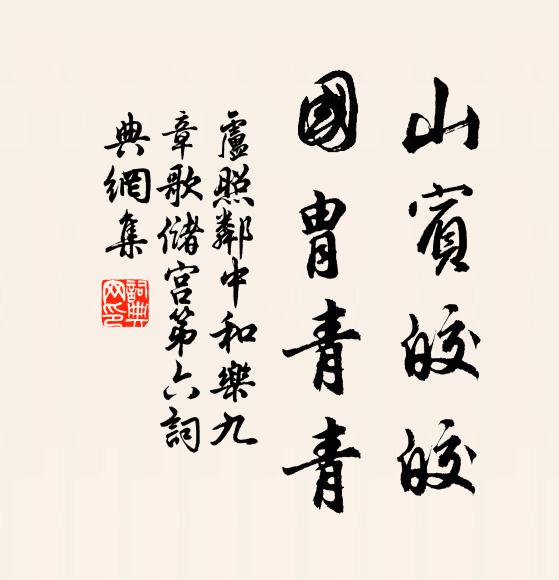 山賓皎皎
國胄青青
盧照鄰中和樂九
章歌儲宮第六詞
典網集
詞典網印